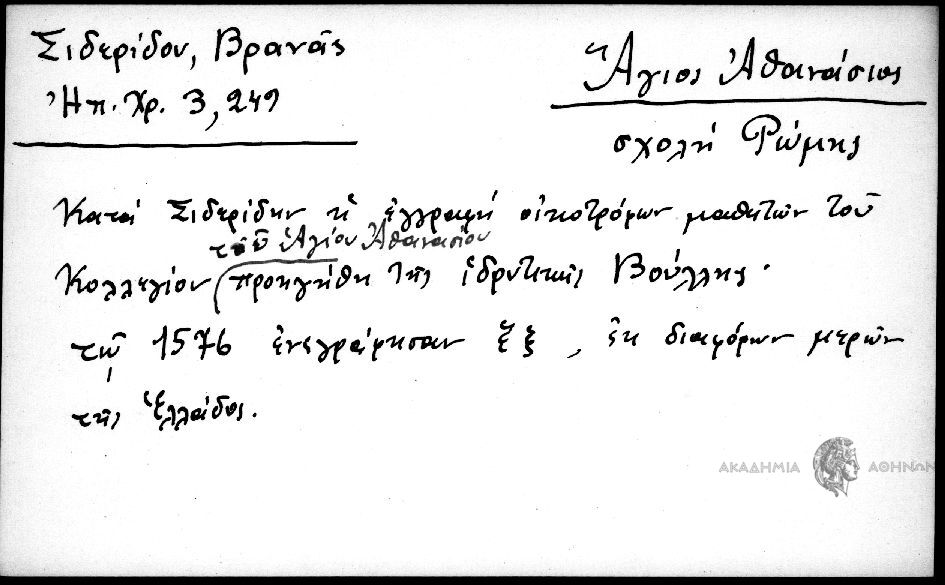 Σιδερίδου, Βρανᾶς
Ἠπ. Χρ. 3, 249
Ἅγιος Ἀθανάσιος
σχολή Ρώμης
Κατά Σιδερίδην ἡ ἐγγραφή οἰκοτρόφων μαθητῶν τοῦ
τοῦ Ἁγίου Ἀθανασίου
Κολλεγίου προηγήθη τῆς ἱδρυτικῆς Βούλλης.
τῷ 1576 ἐνεγράφησαν ἕξ, ἐκ διαφόρων μερῶν
τῆς Ἑλλάδος.
ΑΚΑΔΗΜΙΑ ΑΘΗΝΩΝ